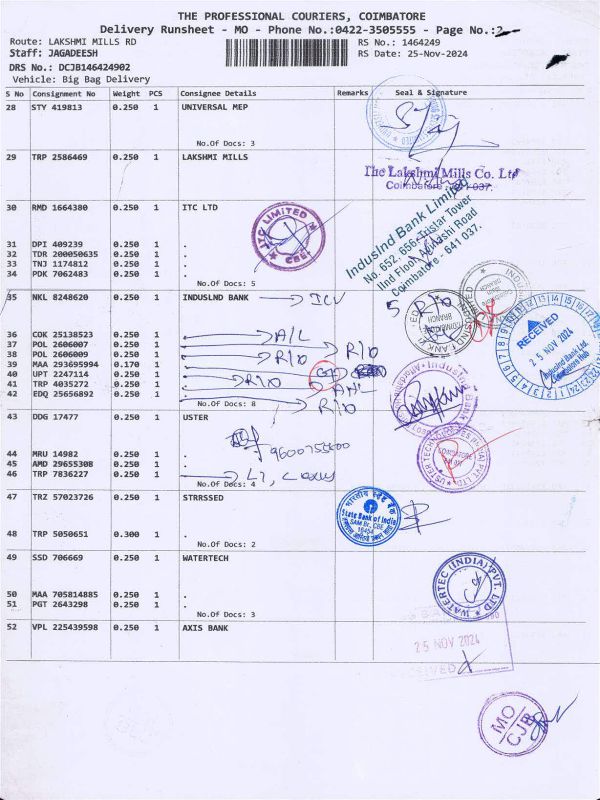 THE PROFESSIONAL COURIERS, COIMBATORE
Delivery Runsheet - MO - Phone No.:0422-3505555 - Page No.:2
Route: LAKSHMI MILLS RD RS No.: 1464249
Staff: JAGADEESH RS Date: 25-Nov-2024
DRS No: DCJB146424902
Vehicle: Big Bag Delivery
S No Consignment No Weight PCS Consignee Details Remarks Seal & Signature
28 STY 419813 0.250 1 UNIVERSAL MEP
No.Of Docs: 3
29 TRP 2586469 0.250 1 LAKSHMI MILLS
The Lakshmi Mills Co. Ltd
Coimbatore - 641 037.
30 RMD 1664380 0.250 1 ITC LTD
ITC LIMITED
CBE
IndusInd Bank Limited
No. 652, 656, Tristar Tower
IInd Floor, Avinashi Road
Coimbatore - 641 037.
31 DPI 409239 0.250 1 .
32 TDR 200050635 0.250 1 .
33 TNJ 1174812 0.250 1 .
34 PDK 7062483 0.250 1 .
No.Of Docs: 5
35 NKL 8248620 0.250 1 INDUSLND BANK
5 R/o
COIMBATORE BRANCH
RECEIVED
25 NOV 2024
IndusInd Bank Ltd.
Coimbatore Hub
36 COK 25138523 0.250 1 . A/L
37 POL 2606007 0.250 1 . R/o
38 POL 2606009 0.250 1 . R/o
39 MAA 293695994 0.170 1 .
40 UPT 2247114 0.250 1 . R/o
41 TRP 4035272 0.250 1 .
42 EDQ 25656892 0.250 1 . R/o
No.Of Docs: 8
43 DDG 17477 0.250 1 USTER
USTER TECHNOLOGIES INDIA PVT LTD
44 MRU 14982 0.250 1 .
45 AMD 29655308 0.250 1 .
46 TRP 7836227 0.250 1 .
No.Of Docs: 4
47 TRZ 57023726 0.250 1 STRRSSED
भारतीय स्टेट बैंक
State Bank of India
SAM Br, CBE
48 TRP 5050651 0.300 1 .
No.Of Docs: 2
49 SSD 706669 0.250 1 WATERTECH
WATERTEC (INDIA) PVT. LTD
50 MAA 705814885 0.250 1 .
51 PGT 2643298 0.250 1 .
No.Of Docs: 3
52 VPL 225439598 0.250 1 AXIS BANK
25 NOV 2024
RECEIVED
MO
CJB